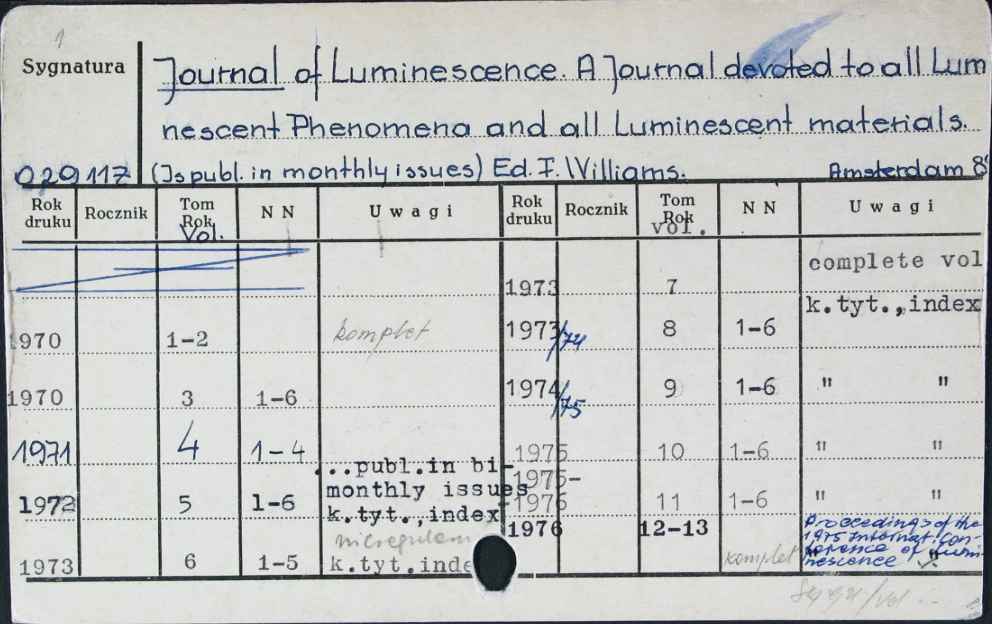 1
Sygnatura
Journal of Luminescence. A Journal devoted to all Lum
nescent Phenomena and all Luminescent materials.
029117 (Is publ. in monthly issues) Ed. F. Williams. Amsterdam 8°
Rok druku Rocznik Tom Rok Vol. N N Uwagi Rok druku Rocznik Tom Rok vol. N N Uwagi
1970 1-2 komplet
1970 3 1-6
1971 4 1-4
...publ.in bi-
monthly issues
1972 5 1-6 k.tyt.,index
1973 6 1-5 k.tyt.inde
1973 7 complete vol
k.tyt.,index
1973/74 8 1-6
1974/75 9 1-6 " "
1975 10 1-6 " "
1975-
1976 11 1-6 " "
1976 12-13 komplet
Proceedings of the
1975 Internat. Con-
ference of Lumi-
nescence